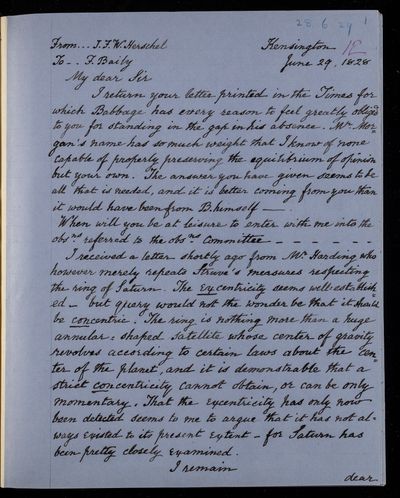 28.6.29 1
From... J.F.W. Herschel Kensington
To - . F. Baily June 29, 1828
My dear Sir
I return your letter printed in the Times for
which Babbage has every reason to feel greatly obliged
to you for standing in the gap in his absence. Mr. Mor
gan's name has so much weight that I know of none
capable of properly preserving the equilibrium of opinion
but your own. The answer you have given seems to be
all that is needed, and it is better coming from you than
it would have been from B. himself —
When will you be at leisure to enter with me into the
obsns. referred to the obsns. Committee - - - - - -
I received a letter shortly ago from Mr. Harding who
however merely repeats Struve's measures respecting
the ring of Saturn. The excentricity seems well establish
ed — but query would not the wonder be that it should
be concentric. The ring is nothing more than a huge
annular-shaped satellite whose center of gravity
revolves according to certain laws about the cen-
ter of the planet, and it is demonstrable that a
strict concentricity cannot obtain, or can be only
momentary. That the excentricity has only now
been detected seems to me to argue that it has not al-
ways existed to its present extent — for Saturn has
been pretty closely examined.
I remain
dear